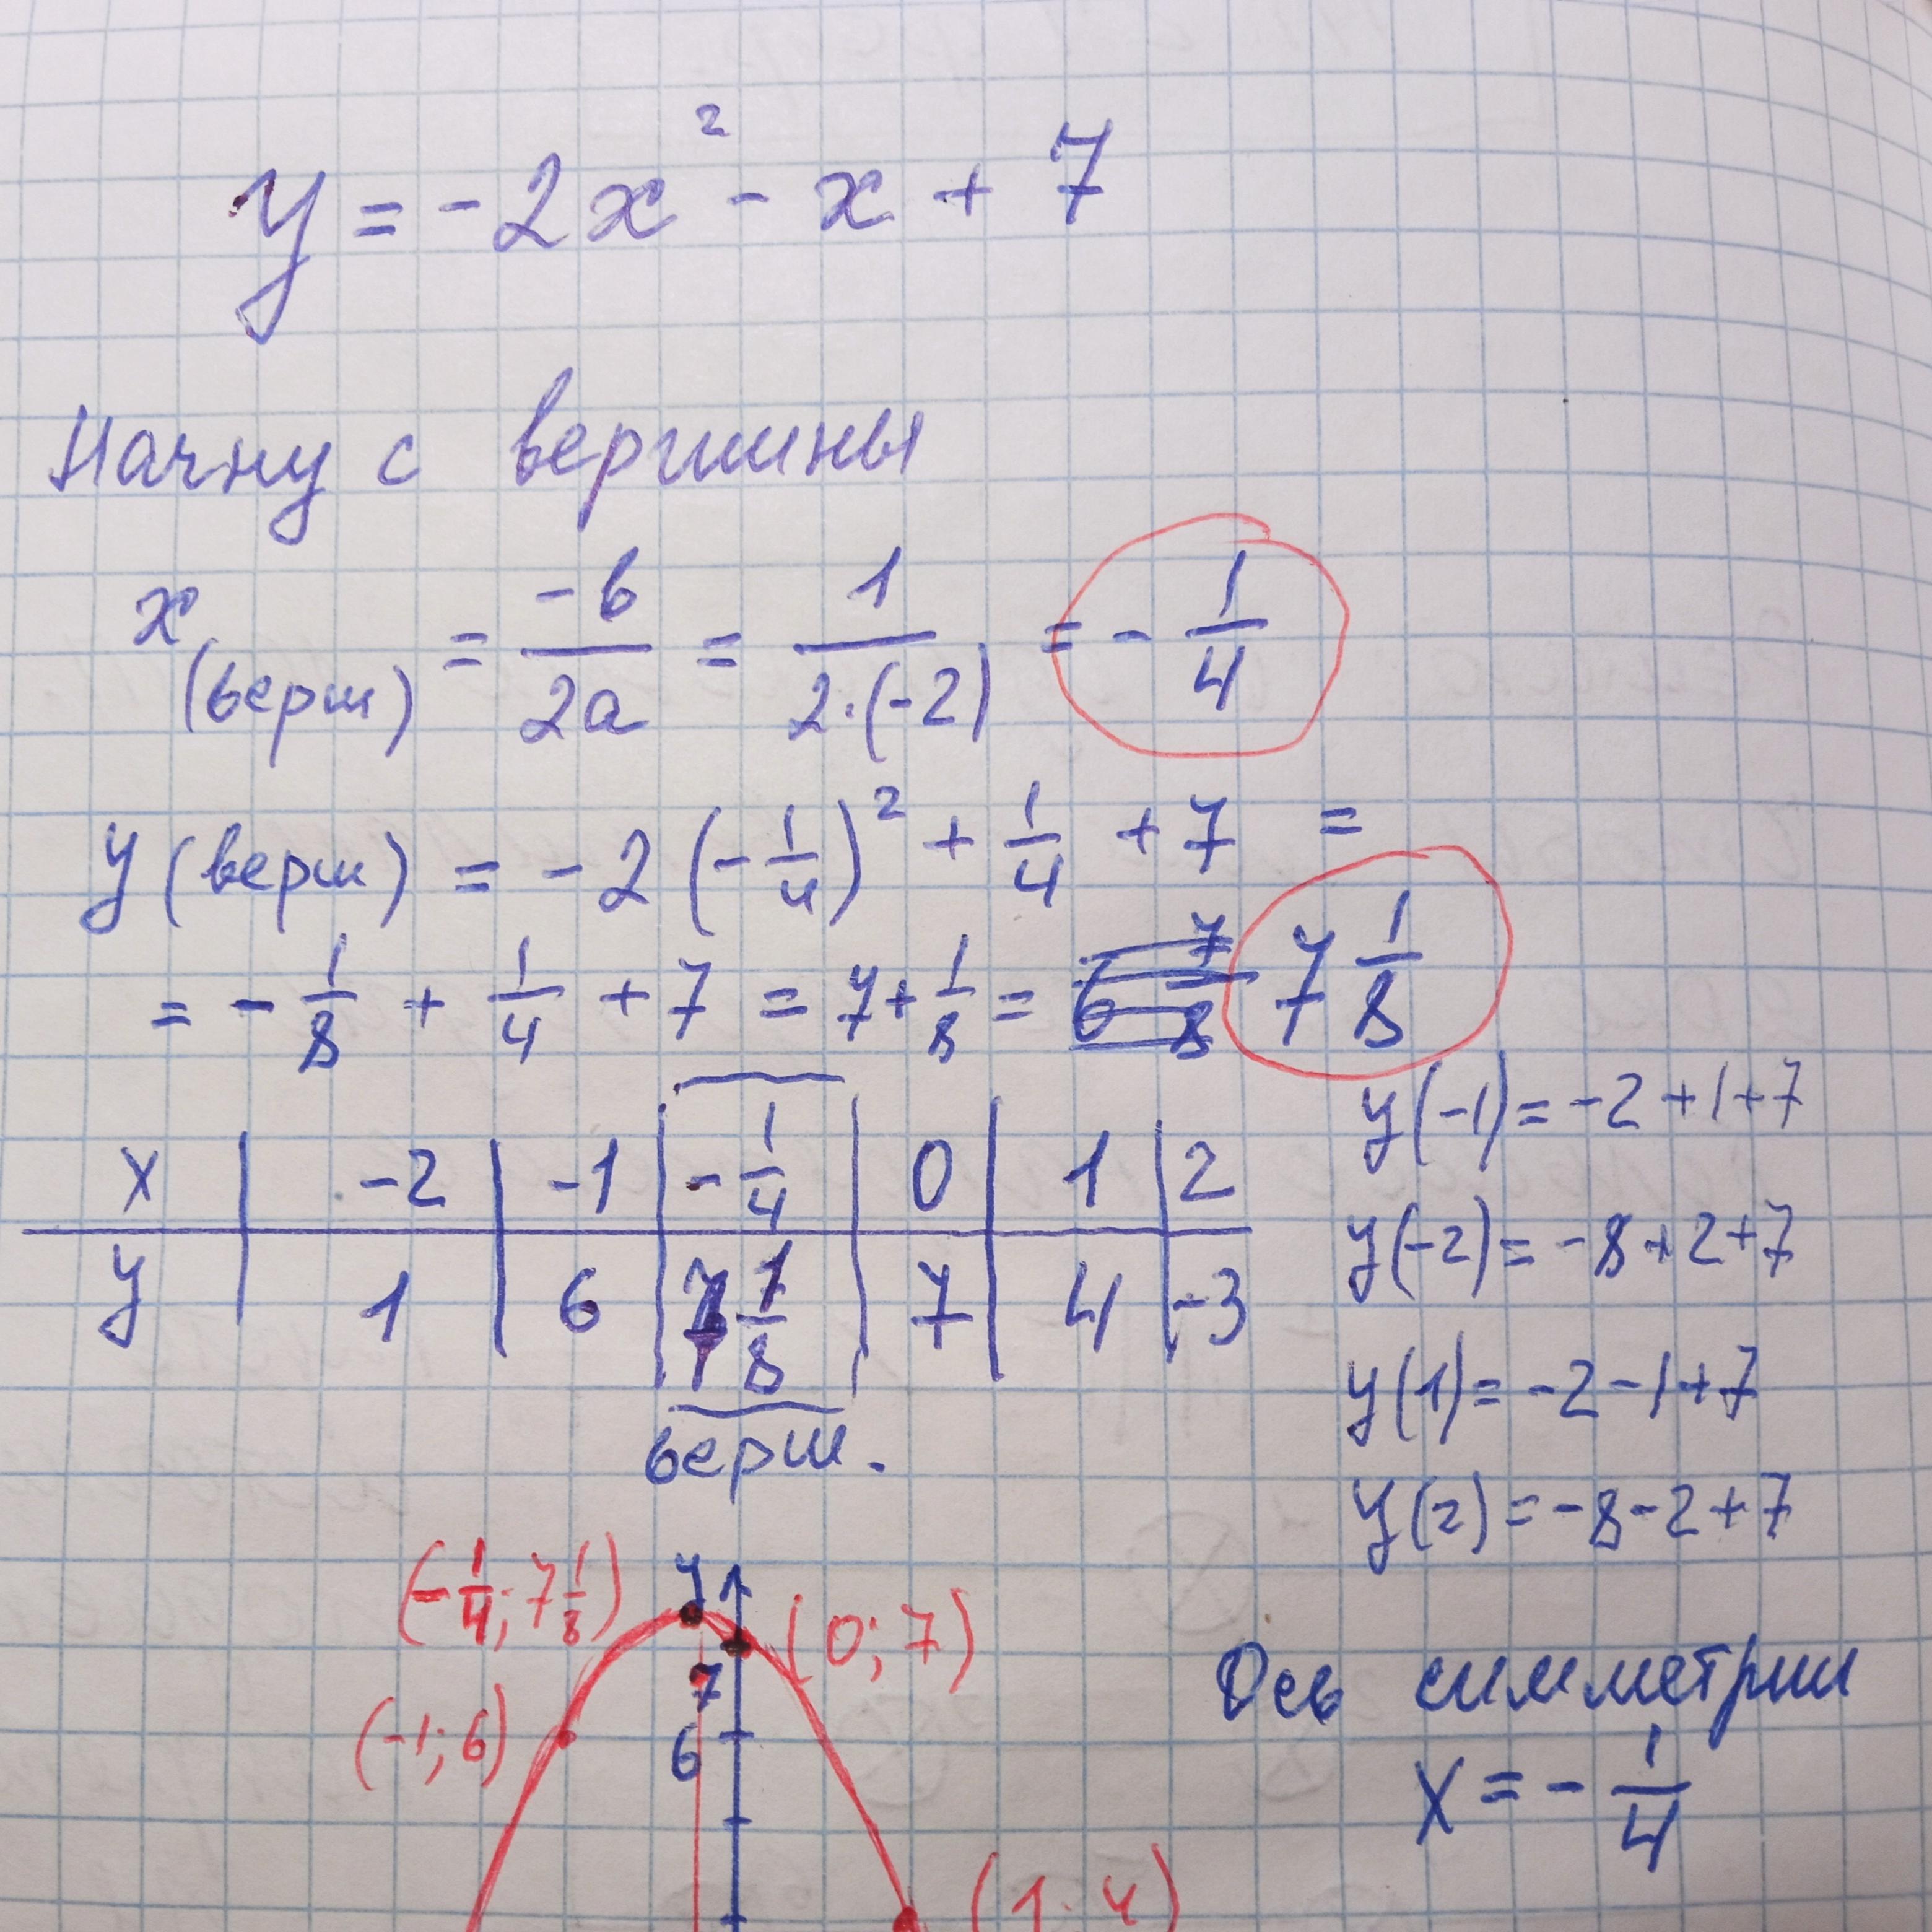 y = -2x² - x + 7
Начну с вершины
x (верш) = -b/2a = 1/2·(-2) = -1/4
y (верш) = -2(-1/4)² + 1/4 + 7 =
= -1/8 + 1/4 + 7 = 7 + 1/8 = 6 7/8 7 1/8
x | -2 | -1 | -1/4 | 0 | 1 | 2
y | 1 | 6 | 7 1/8 | 7 | 4 | -3
верш.
y(-1) = -2+1+7
y(-2) = -8+2+7
y(1) = -2-1+7
y(2) = -8-2+7
(-1/4; 7 1/8)
y
(0; 7)
7
(-1; 6)
6
(1; 4)
Ось симметрии
x = -1/4